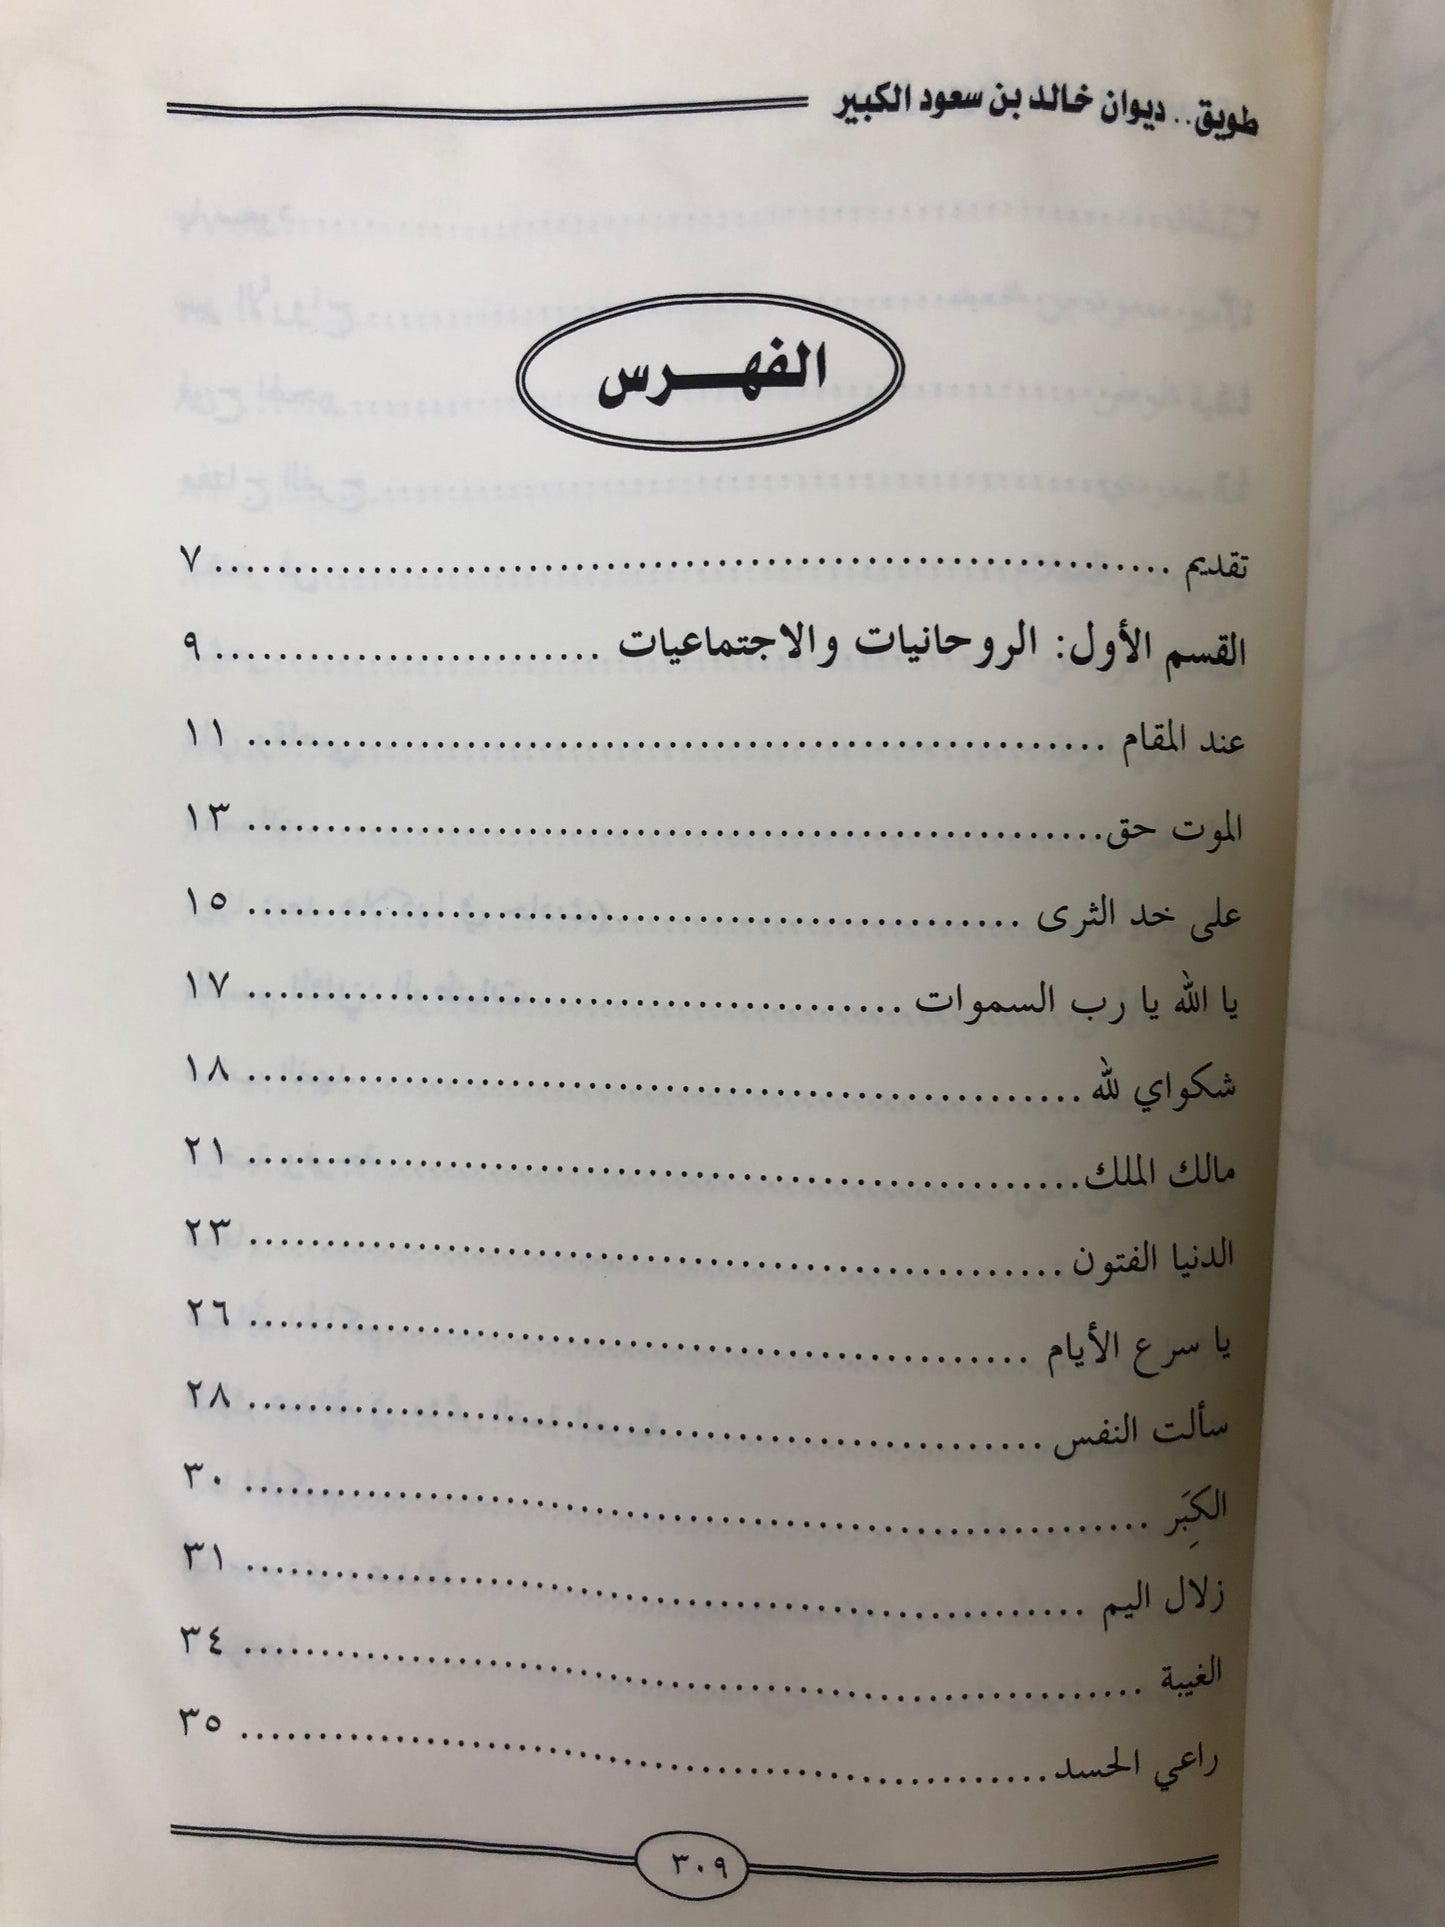 طويق.. ديوان خالد بن سعود الكبير
الفهرس
تقديم ........ ٧
القسم الأول: الروحانيات والاجتماعيات ........ ٩
عند المقام ........ ١١
الموت حق ........ ١٣
على خد الثرى ........ ١٥
يا الله يا رب السموات ........ ١٧
شكواي لله ........ ١٨
مالك الملك ........ ٢١
الدنيا الفتون ........ ٢٣
يا سرع الأيام ........ ٢٦
سألت النفس ........ ٢٨
الكِبَر ........ ٣٠
زلال اليم ........ ٣١
الغيبة ........ ٣٤
راعي الحسد ........ ٣٥
٣٠٩